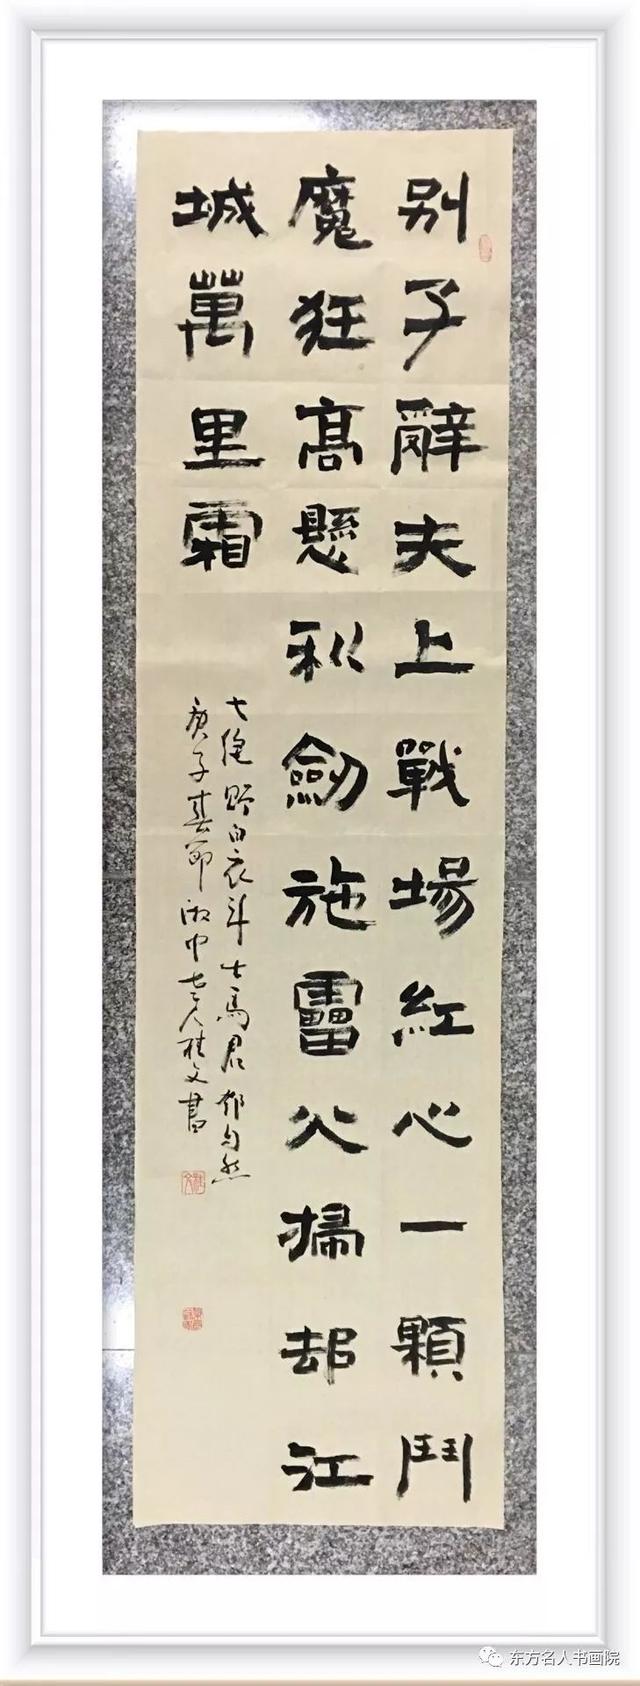 别子辭夫上戰場紅心一顆鬥
魔狂高懸利劍施雷火掃却江
城萬里霜
七绝 贈白衣斗士馬君郁勻然
庚子春節 湘中老人桂文書
东方名人书画院